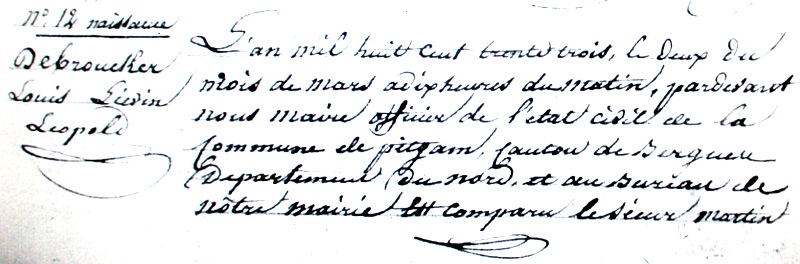 N° 12 naissance
Debroucker
Louis Liévin
Leopold
L'an mil huit cent trente trois, le deux du
mois de mars a dix heures du matin, pardevant
nous maire officier de l'etat civil de la
Commune de pitgam, Canton de Bergues
Departement Du nord, et au Bureau de
nôtre mairie Est comparu le sieur martin